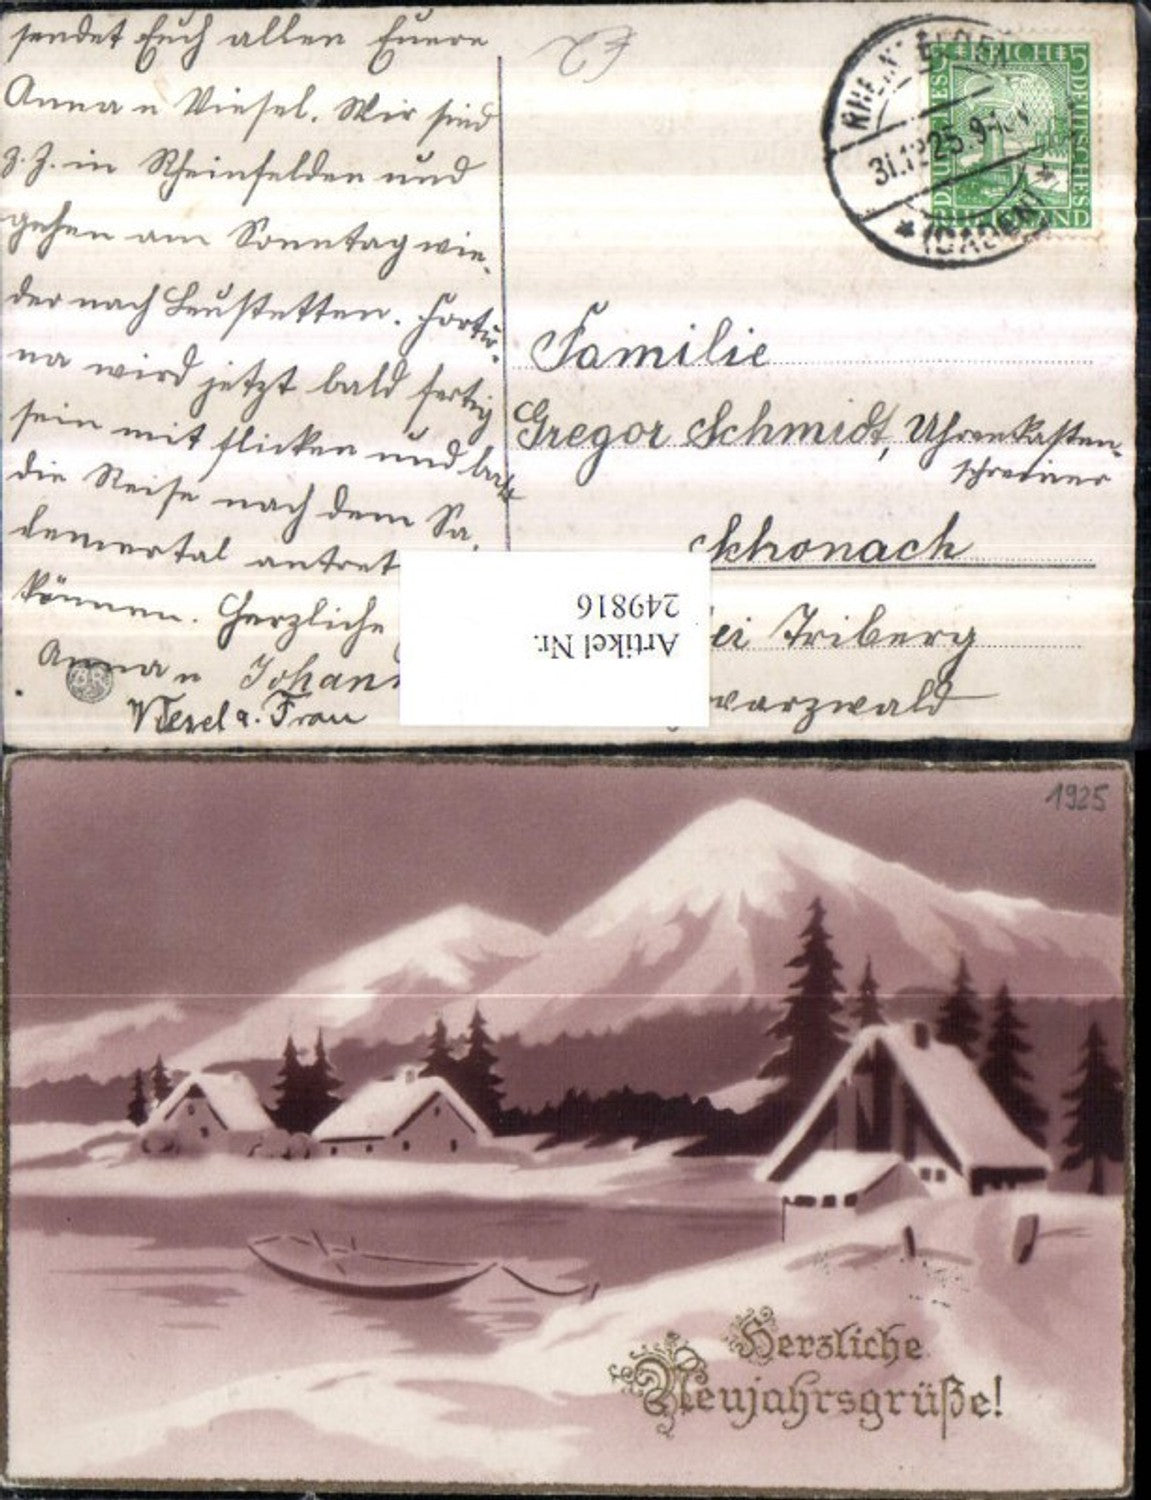 sendet Euch allen Euere
Anna u Wiesel. Wir sind
z. Z. in Rheinfelden und
gehen am Sonntag wie-
der nach Leustetten. Fortu-
na wird jetzt bald fertig
sein mit flicken und
die Reise nach dem Sa-
lemertal antret
können. Herzliche
Anna u Johann
Wiesel u. Frau
31.12.25.9-10
(BADEN)
DEUTSCHES REICH
5 5
RHEINLAND
Familie
Gregor Schmidt, Uhrenkasten-
schreiner
Schonach
ei Triberg
warzwald
Artikel Nr.
249816
1925
Herzliche
Neujahrsgrüße!